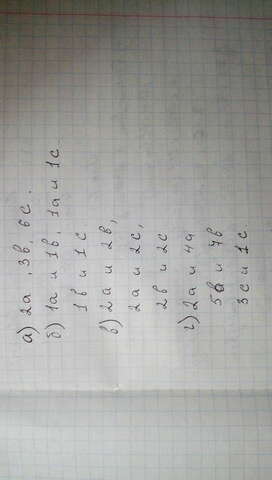 а) 2а, 3в, 6с.
б) 1а и 1в, 1а и 1с
1в и 1с
в) 2а и 2в,
2а и 2с,
2в и 2с
г) 2а и 4а
5в и 4в
3с и 1с